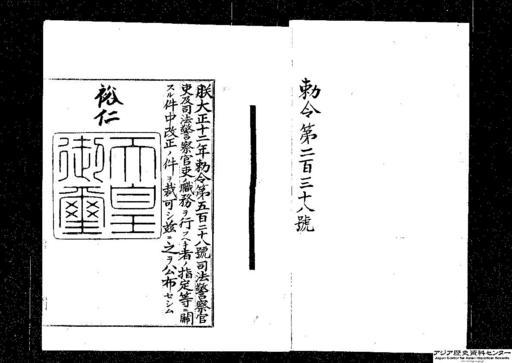 勅令第二百三十八號
朕大正十二年勅令第五百二十八號司法警察官
吏及司法警察官吏ノ職務ヲ行フヘキ者ノ指定等ニ關
スル件中改正ノ件ヲ裁可シ茲ニ之ヲ公布セシム
裕仁
天皇
御璽
アジア歴史資料センター
Japan Center for Asian Historical Records